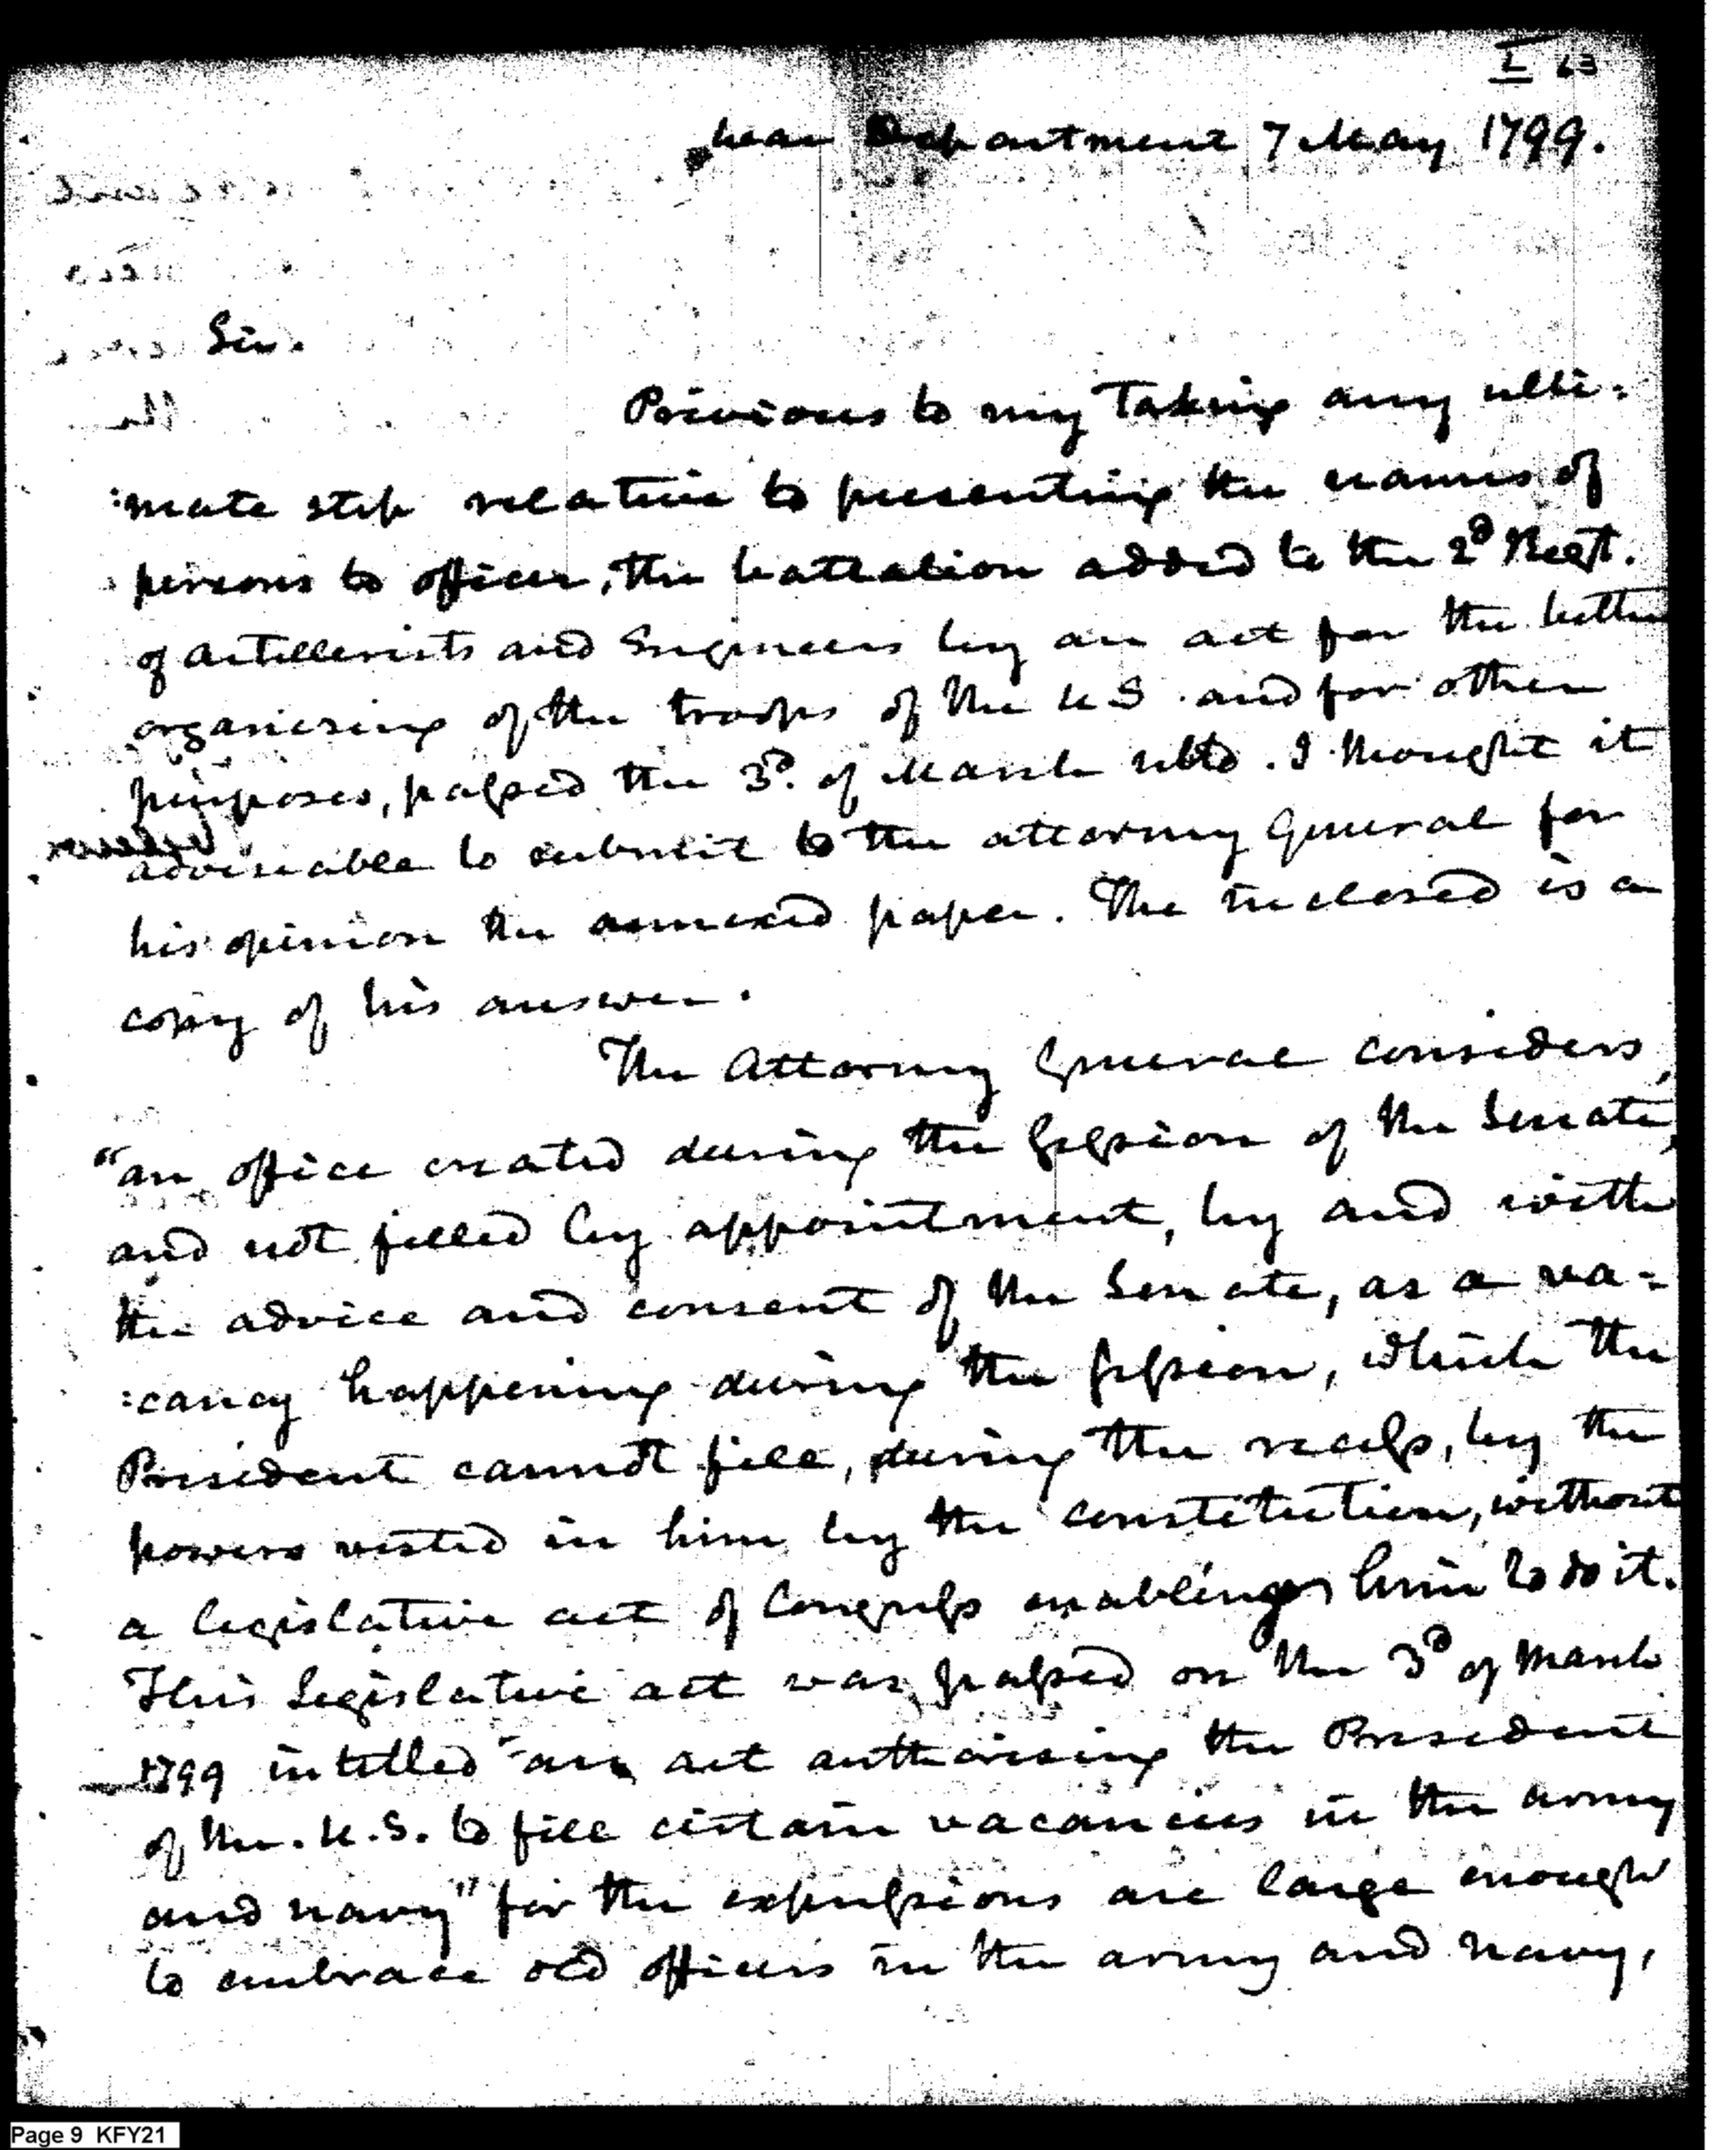 I 63
War Department 7 May 1799.
Sir.
Previous to my Taking any ulti:
:mate step relative to presenting the names of
persons to officer, the battalion added to the 2d Regt.
of Artillerists and Engineers by an act for the better
organising of the troops of the U S and for other
purposes, passed the 3d. of March ulto. I thought it
adviseable to submit to the attorney General for
his opinion the annexed paper. The inclosed is a
copy of his answer.
The Attorney General considers,
"an office created during the Session of the Senate,
and not filled by appointment, by and with
the advice and consent of the Senate, as a va-
:cancy happening during the Session, which the
President cannot fill, during the recess, by the
powers vested in him by the constitution, without
a legislative act of Congress enabling him to do it.
This Legislative act was passed on the 3d of March
1799 intitled "an act authorising the President
of the U.S. to fill certain vacancies in the army
and navy" for the expressions are large enough
to embrace old officers in the army and navy,
Page 9 KFY21